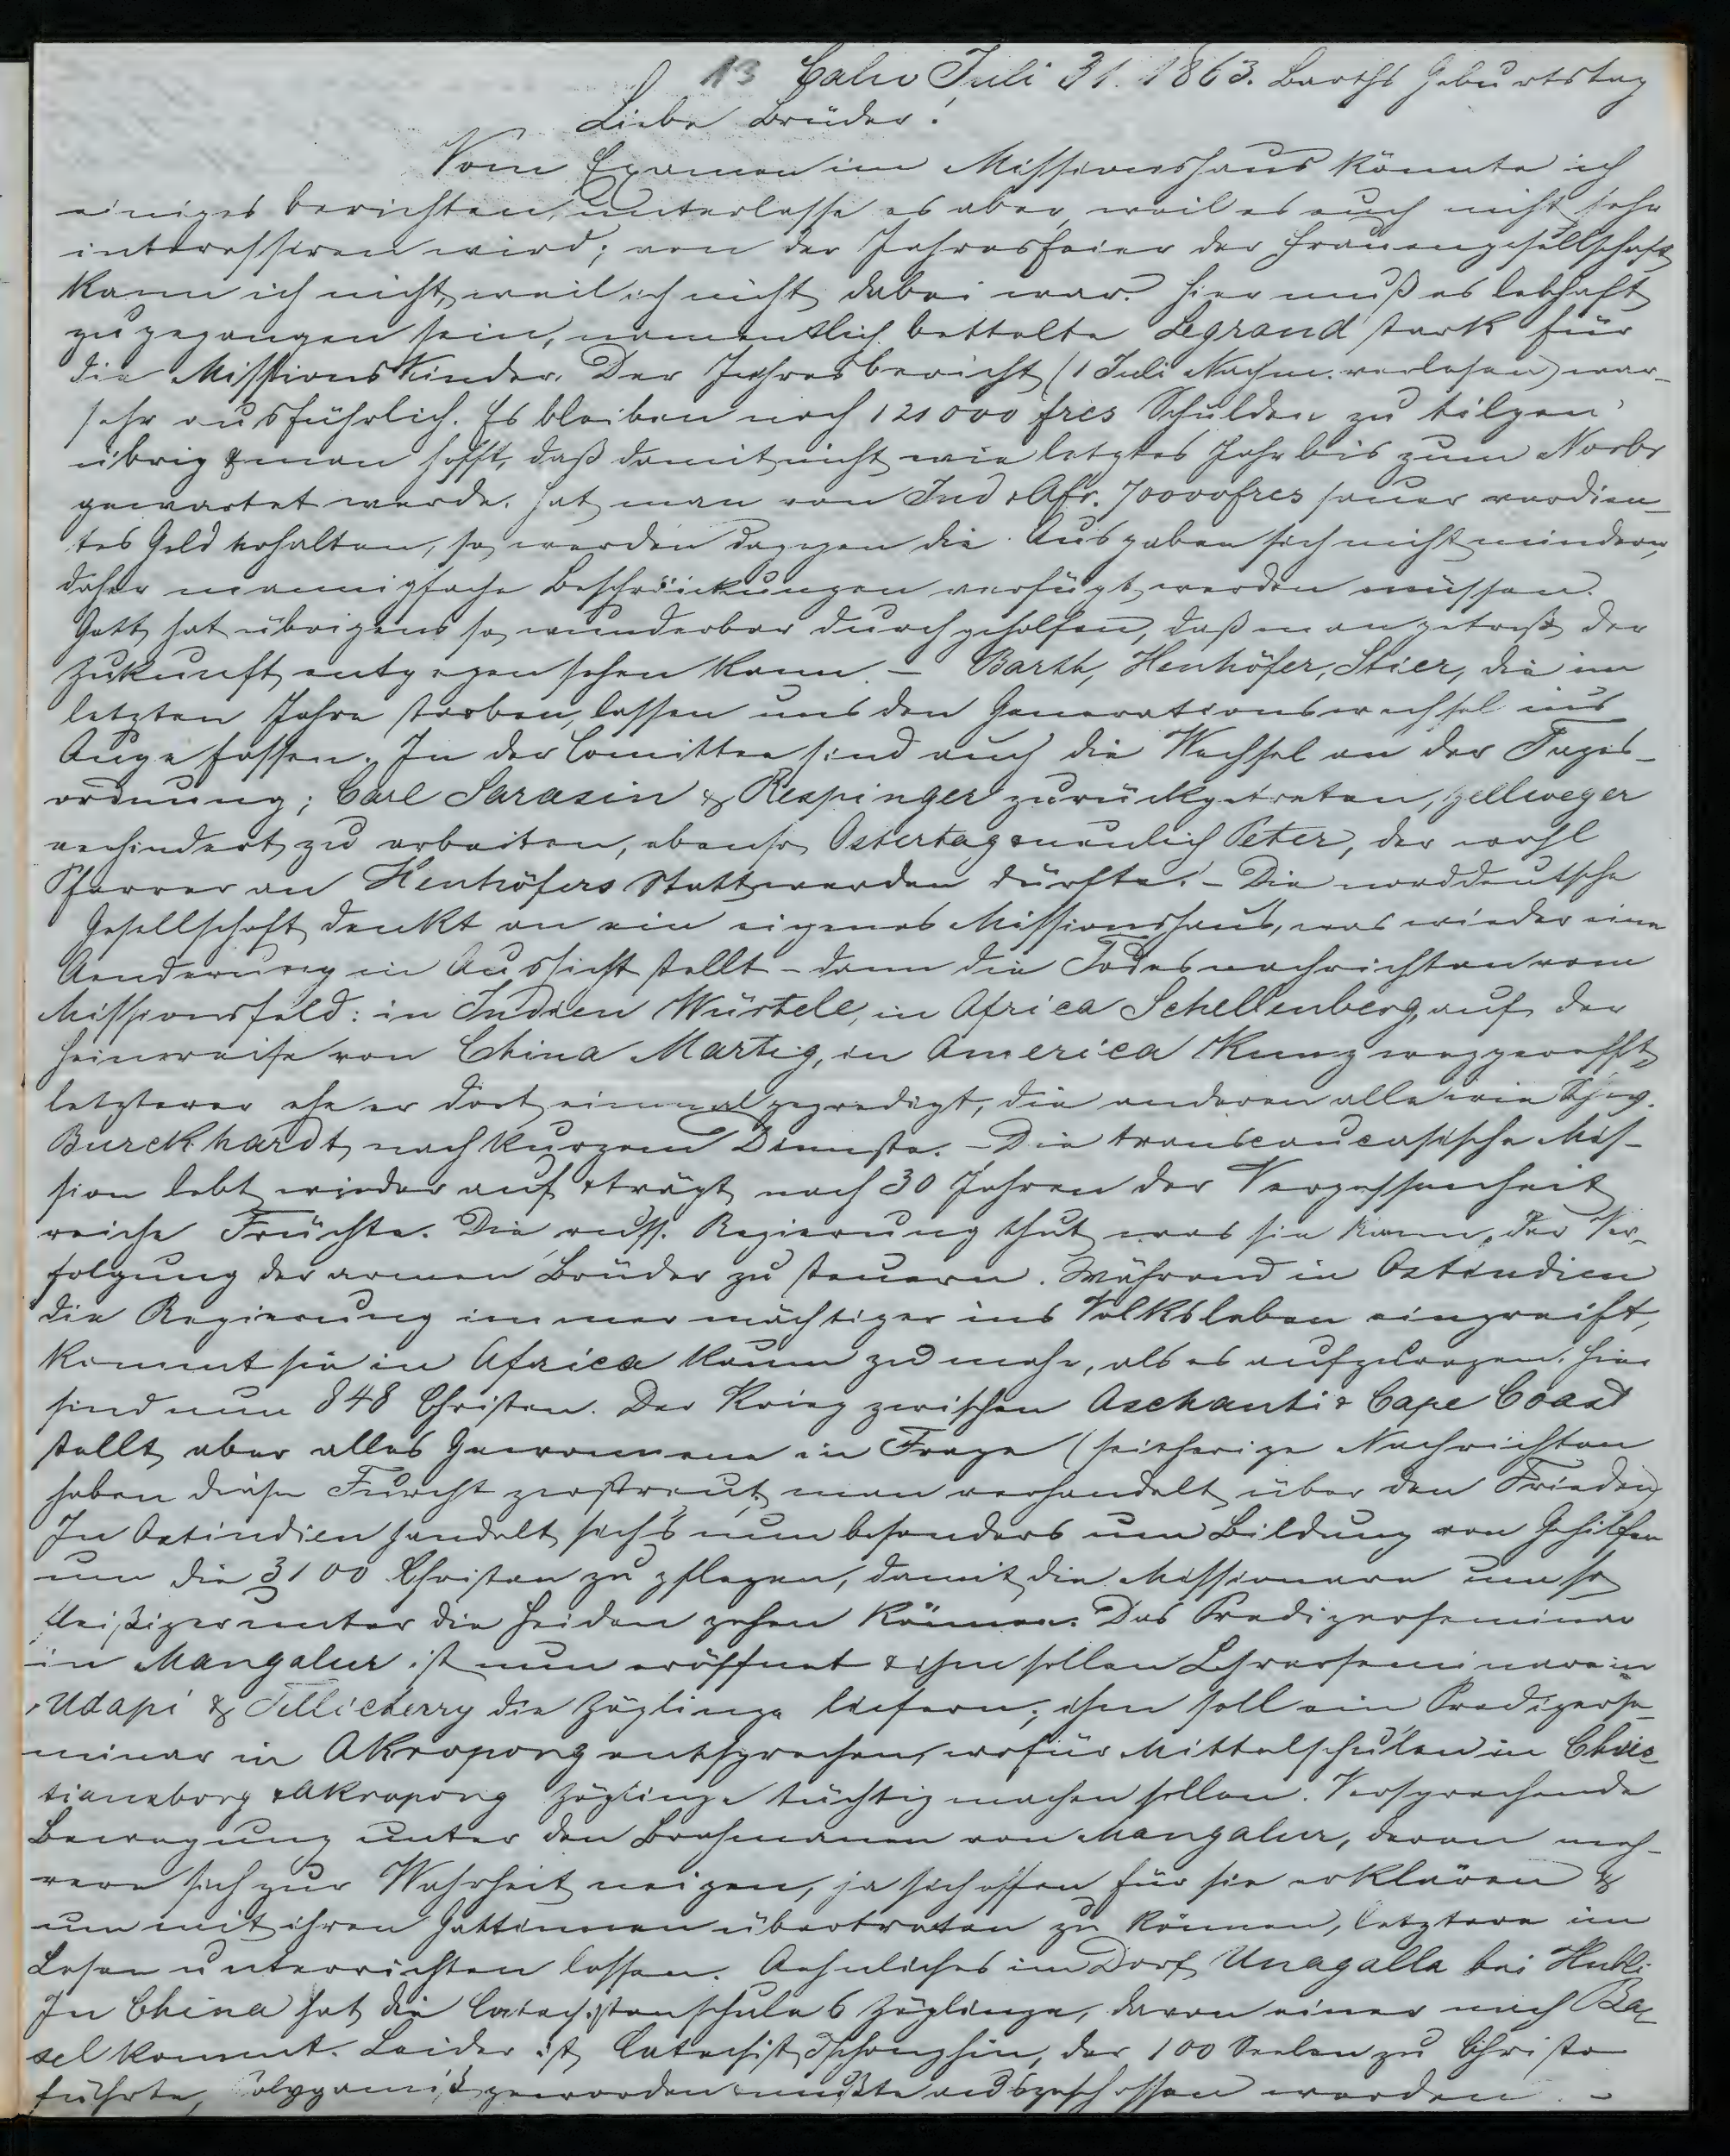 13 Calw Juli 31. 1863. Barths Geburtstag
Liebe Brüder!
Vom Examen im Missionshaus könnte ich
einiges berichten, unterlasse es aber, weil es euch nicht sehr
interessiren wird; von der Jahresfeier der Frauengesellschaft
kann ich nicht, weil ich nicht dabei war. Hier muß es lebhaft
zugegangen sein, namentlich bettelte Legrand stark für
die Missionskinder. Der Jahresbericht (1 Juli Nachm. verlesen) war
sehr ausführlich. Es bleiben noch 121000 frcs Schulden zu tilgen
übrig & man hofft, daß damit nicht wie letztes Jahr bis zum Novbr
gewartet werde. Hat man von Ind & Afr. 70000 frcs sauer verdien-
tes Geld erhalten, so werden dagegen die Ausgaben sich nicht mindern,
daher mannigfache Beschränkungen verfügt werden müssen.
Gott hat übrigens so wunderbar durchgeholfen, daß man getrost der
Zukunft entgegensehen kann. - Barth, Henhöfer, Stier, die im
letzten Jahre starben, lassen uns den Generationswechsel ins
Auge fassen. In der Comittee sind auch die Wechsel an der Tages-
ordnung; Carl Sarasin & Respinger zurückgetreten, Zellweger
verhindert zu arbeiten, ebenso Ostertag & neulich Peter, der wohl
Pfarrer an Henhöfers Statt werden dürfte. - Die norddeutsche
Gesellschaft denkt an ein eigenes Missionshaus, was wieder eine
Aenderung in Aussicht stellt - dann die Todesnachrichten vom
Missionsfeld: in Indien Würtele, in Africa Schellenberg, auf der
Heimreise von China Martig, in America Kunz weggerafft,
letzterer ehe er dort einmal gepredigt, die anderen alle wie Schw.
Burckhardt nach kurzem Dienste. - Die transcaucasische Mis-
sion lebt wieder auf & trägt nach 30 Jahren der Vergessenheit
reiche Früchte. Die russ. Regierung thut was sie kann, der Ver-
folgung der armen Brüder zu steuern. Während in Ostindien
die Regierung immer mächtiger ins Volksleben eingreift,
kommt sie in Africa kaum zu mehr, als es aufzuregen. Hier
sind nun 848 Christen. Der Krieg zwischen Aschanti & Cape Coast
stellt aber alles Gewonnene in Frage (seitherige Nachrichten
haben diese Furcht zerstreut, man verhandelt über den Frieden)
In Ostindien handelt sich's nun besonders um Bildung von Gehilfen
um die 3100 Christen zu pflegen, damit die Missionare um so
fleißiger unter die Heiden gehen können. Das Predigerseminar
in Mangalur ist nun eröffnet & ihm sollen Lehrerseminare in
Udapi & Tellicherry die Zöglinge liefern; ihm soll ein Predigerse-
minar in Akropong entsprechen, wofür Mittelschulen in Chris-
tiansborg & Akropong Zöglinge tüchtig machen sollen. Versprechende
Bewegung unter den Brahmanen von Mangalur, deren meh-
rere sich zur Wahrheit neigen, ja sich offen für sie erklären &
um mit ihren Gattinnen übertreten zu können, letztere im
Lesen unterrichten lassen. Aehnliches im Dorf Unagalla bei Hubli
In China hat die Catechistenschule 6 Zöglinge, davon einer nach Ba-
sel kommt. Leider ist Catechist Tschonghin, der 100 Seelen zu Christo
führte, polygamist geworden & mußte ausgeschlossen werden. -